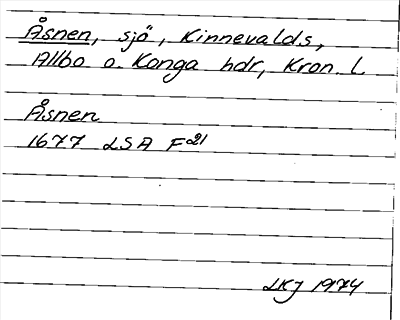 Åsnen, sjö, Kinnevalds,
Allbo o. Konga hdr, Kron. l.
Åsnen
1677 LSA F21
LKJ 1974